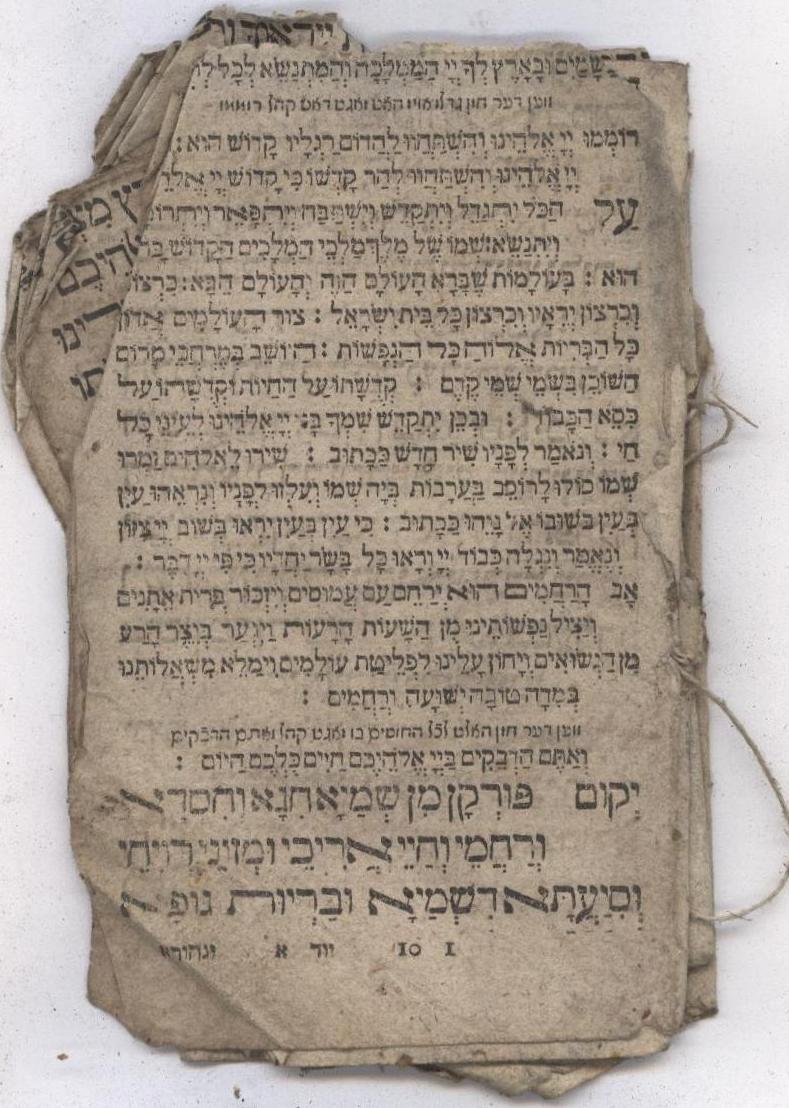 בַּשָּׁמַיִם וּבָאָרֶץ לְךָ יְיָ הַמַּמְלָכָה וְהַמִּתְנַשֵּׂא לְכָל לְ
ווען דער חזן האט זאגט דאש קהל רוממו
רוֹמְמוּ יְיָ אֱלֹהֵינוּ וְהִשְׁתַּחֲווּ לַהֲדוֹם רַגְלָיו קָדוֹשׁ הוּא:
יְיָ אֱלֹהֵינוּ וְהִשְׁתַּחֲווּ לְהַר קָדְשׁוֹ כִּי קָדוֹשׁ יְיָ אֱלֹהֵ
עַל הַכֹּל יִתְגַּדַּל וְיִתְקַדַּשׁ וְיִשְׁתַּבַּח וְיִתְפָּאַר וְיִתְרוֹמַ
וְיִתְנַשֵּׂא שְׁמוֹ שֶׁל מֶלֶךְ מַלְכֵי הַמְּלָכִים הַקָּדוֹשׁ בָּרוּ
הוּא : בָּעוֹלָמוֹת שֶׁבָּרָא הָעוֹלָם הַזֶּה וְהָעוֹלָם הַבָּא: כִּרְצוֹנ
וְכִרְצוֹן יְרֵאָיו וְכִרְצוֹן כָּל בֵּית יִשְׂרָאֵל : צוּר הָעוֹלָמִים אֲדוֹן
כָּל הַבְּרִיּוֹת אֱלוֹהַּ כָּל הַנְּפָשׁוֹת : הַיּוֹשֵׁב בְּמֶרְחֲבֵי מָרוֹם
הַשּׁוֹכֵן בִּשְׁמֵי שְׁמֵי קֶדֶם : קְדֻשָּׁתוֹ עַל הַחַיּוֹת וּקְדֻשָּׁתוֹ עַל
כִּסֵּא הַכָּבוֹד : וּבְכֵן יִתְקַדֵּשׁ שִׁמְךָ בָּנוּ יְיָ אֱלֹהֵינוּ לְעֵינֵי כָּל
חָי : וְנֹאמַר לְפָנָיו שִׁיר חָדָשׁ כַּכָּתוּב : שִׁירוּ לֵאלֹהִים זַמְּרוּ
שְׁמוֹ סוֹלּוּ לָרוֹכֵב בָּעֲרָבוֹת בְּיָהּ שְׁמוֹ וְעִלְזוּ לְפָנָיו וְנִרְאֵהוּ עַיִן
בְּעַיִן בְּשׁוּבוֹ אֶל נָוֵהוּ כַּכָּתוּב : כִּי עַיִן בְּעַיִן יִרְאוּ בְּשׁוּב יְיָ צִיּוֹן
וְנֶאֱמַר וְנִגְלָה כְּבוֹד יְיָ וְרָאוּ כָל בָּשָׂר יַחְדָּיו כִּי פִּי יְיָ דִּבֵּר :
אָב הָרַחֲמִים הוּא יְרַחֵם עַם עֲמוּסִים וְיִזְכּוֹר בְּרִית אֵתָנִים
וְיַצִּיל נַפְשׁוֹתֵינוּ מִן הַשָּׁעוֹת הָרָעוֹת וְיִגְעַר בְּיֵצֶר הָרַע
מִן הַנְּשׂוּאִים וְיָחוֹן עָלֵינוּ לִפְלֵיטַת עוֹלָמִים וִימַלֵּא מִשְׁאֲלוֹתֵנוּ
בְּמִדָּה טוֹבָה יְשׁוּעָה וְרַחֲמִים :
ווען דער חזן האלט זאגט קהל ואתם הדבקים
וְאַתֶּם הַדְּבֵקִים בַּיְיָ אֱלֹהֵיכֶם חַיִּים כֻּלְּכֶם הַיּוֹם :
יְקוּם פּוּרְקָן מִן שְׁמַיָּא חִנָּא וְחִסְדָּא
וְרַחֲמֵי וְחַיֵּי אֲרִיכֵי וּמְזוֹנֵי רְוִיחֵי
וְסִיַּעְתָּא דִשְׁמַיָּא וּבַרְיוּת גּוּפָא
ונהורא א יוד 10 I